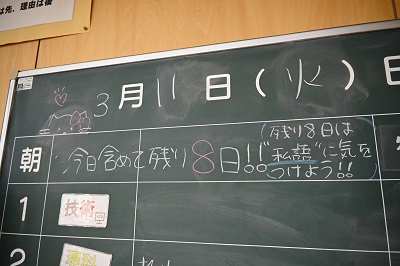 は先、理由は後
3月11日(火)日
朝 今日含めて残り8日!!
(残り8日は
"私語"に気を
つけよう!!)
1 技術
2